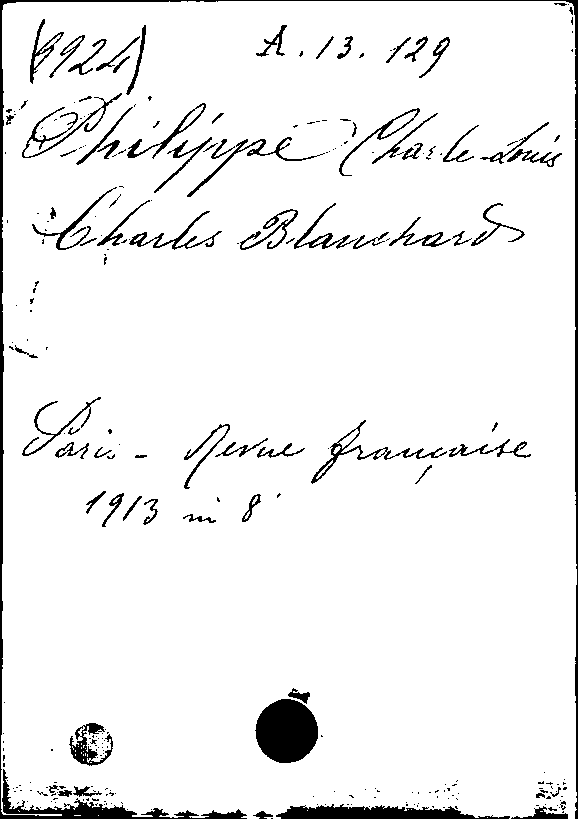 (9924) A. 13. 129
Philippe Charle-Louis
Charles Blanchard
Paris - Revue française
1913 in 8°